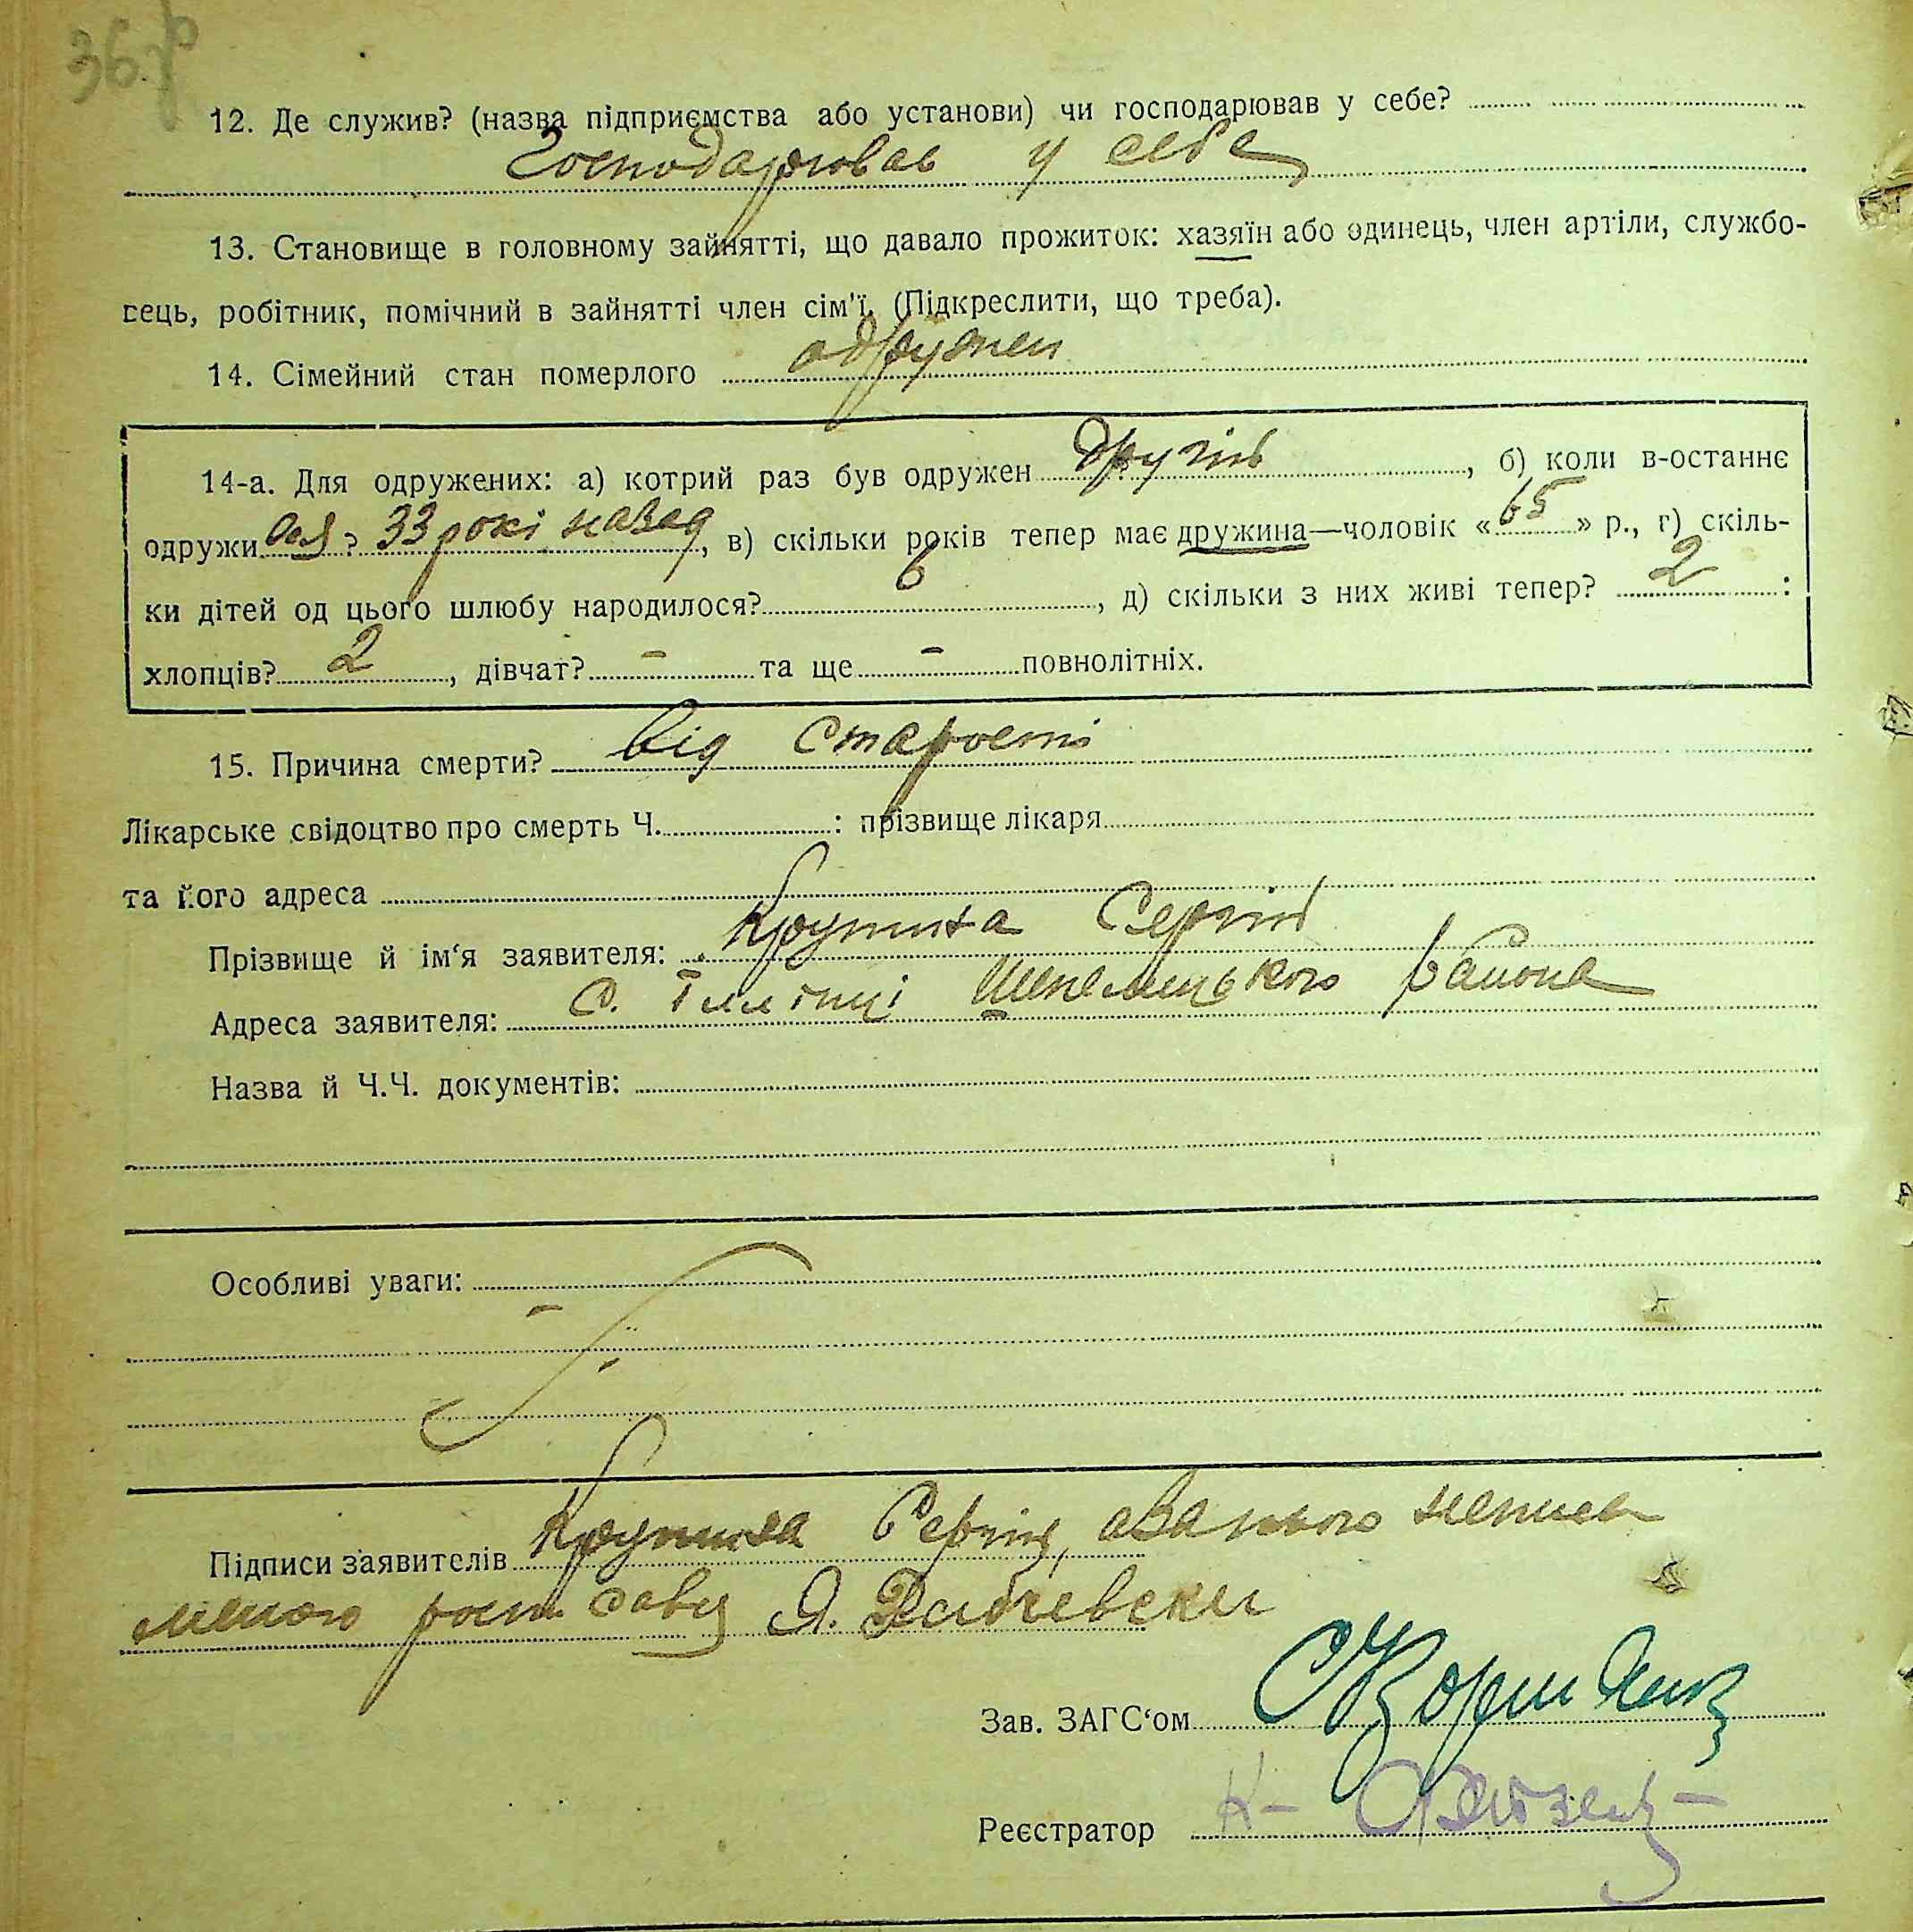 36
12. Де служив? (назва підприємства або установи) чи господарював у себе?
Господарював у себе
13. Становище в головному зайнятті, що давало прожиток: хазяїн або одинець, член артіли, службо-
вець, робітник, помічний в зайнятті член сім'ї. (Підкреслити, що треба).
14. Сімейний стан померлого одружен
14-а. Для одружених: а) котрий раз був одружен другий, б) коли в-останнє
одружився? 33 рокі назад, в) скільки років тепер має дружина—чоловік «65» р., г) скіль-
ки дітей од цього шлюбу народилося? 6, д) скільки з них живі тепер? 2:
хлопців? 2, дівчат? - та ще - повнолітніх.
15. Причина смерти? від старості
Лікарське свідоцтво про смерть Ч. : прізвище лікаря
та його адреса
Прізвище й ім'я заявителя: Сергій
Адреса заявителя: с. Іллінці Шепелицького района
Назва й Ч.Ч. документів:
Особливі уваги: -
Підписи заявителів Сергій, а за нього непись
меного
Зав. ЗАГС'ом
Реєстратор